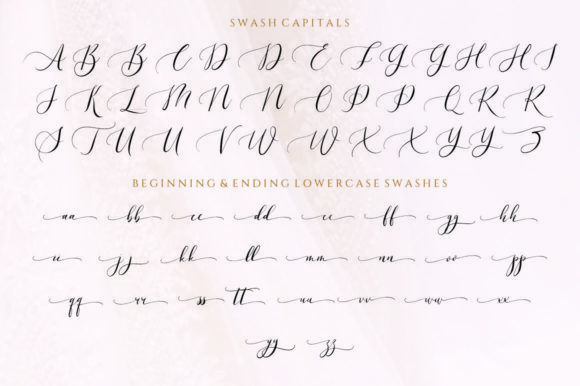 SWASH CAPITALS
A B B C D D E F G G H H I
J K L M N N O P P Q R R
S T U U V W W X X Y Y Z
BEGINNING & ENDING LOWERCASE SWASHES
aa bb cc dd ee ff gg hh
ii jj kk ll mm nn oo pp
qq rr ss tt uu vv ww xx
yy zz